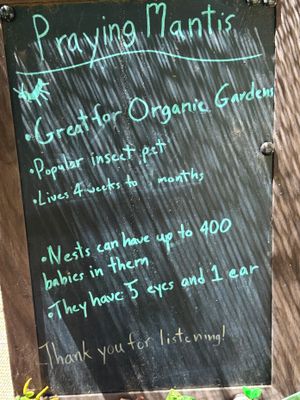 Praying Mantis
• Great for Organic Gardens
• Popular insect pet
• Lives 4 weeks to months
• Nests can have up to 400
babies in them
• They have 5 eyes and 1 ear
Thank you for listening!